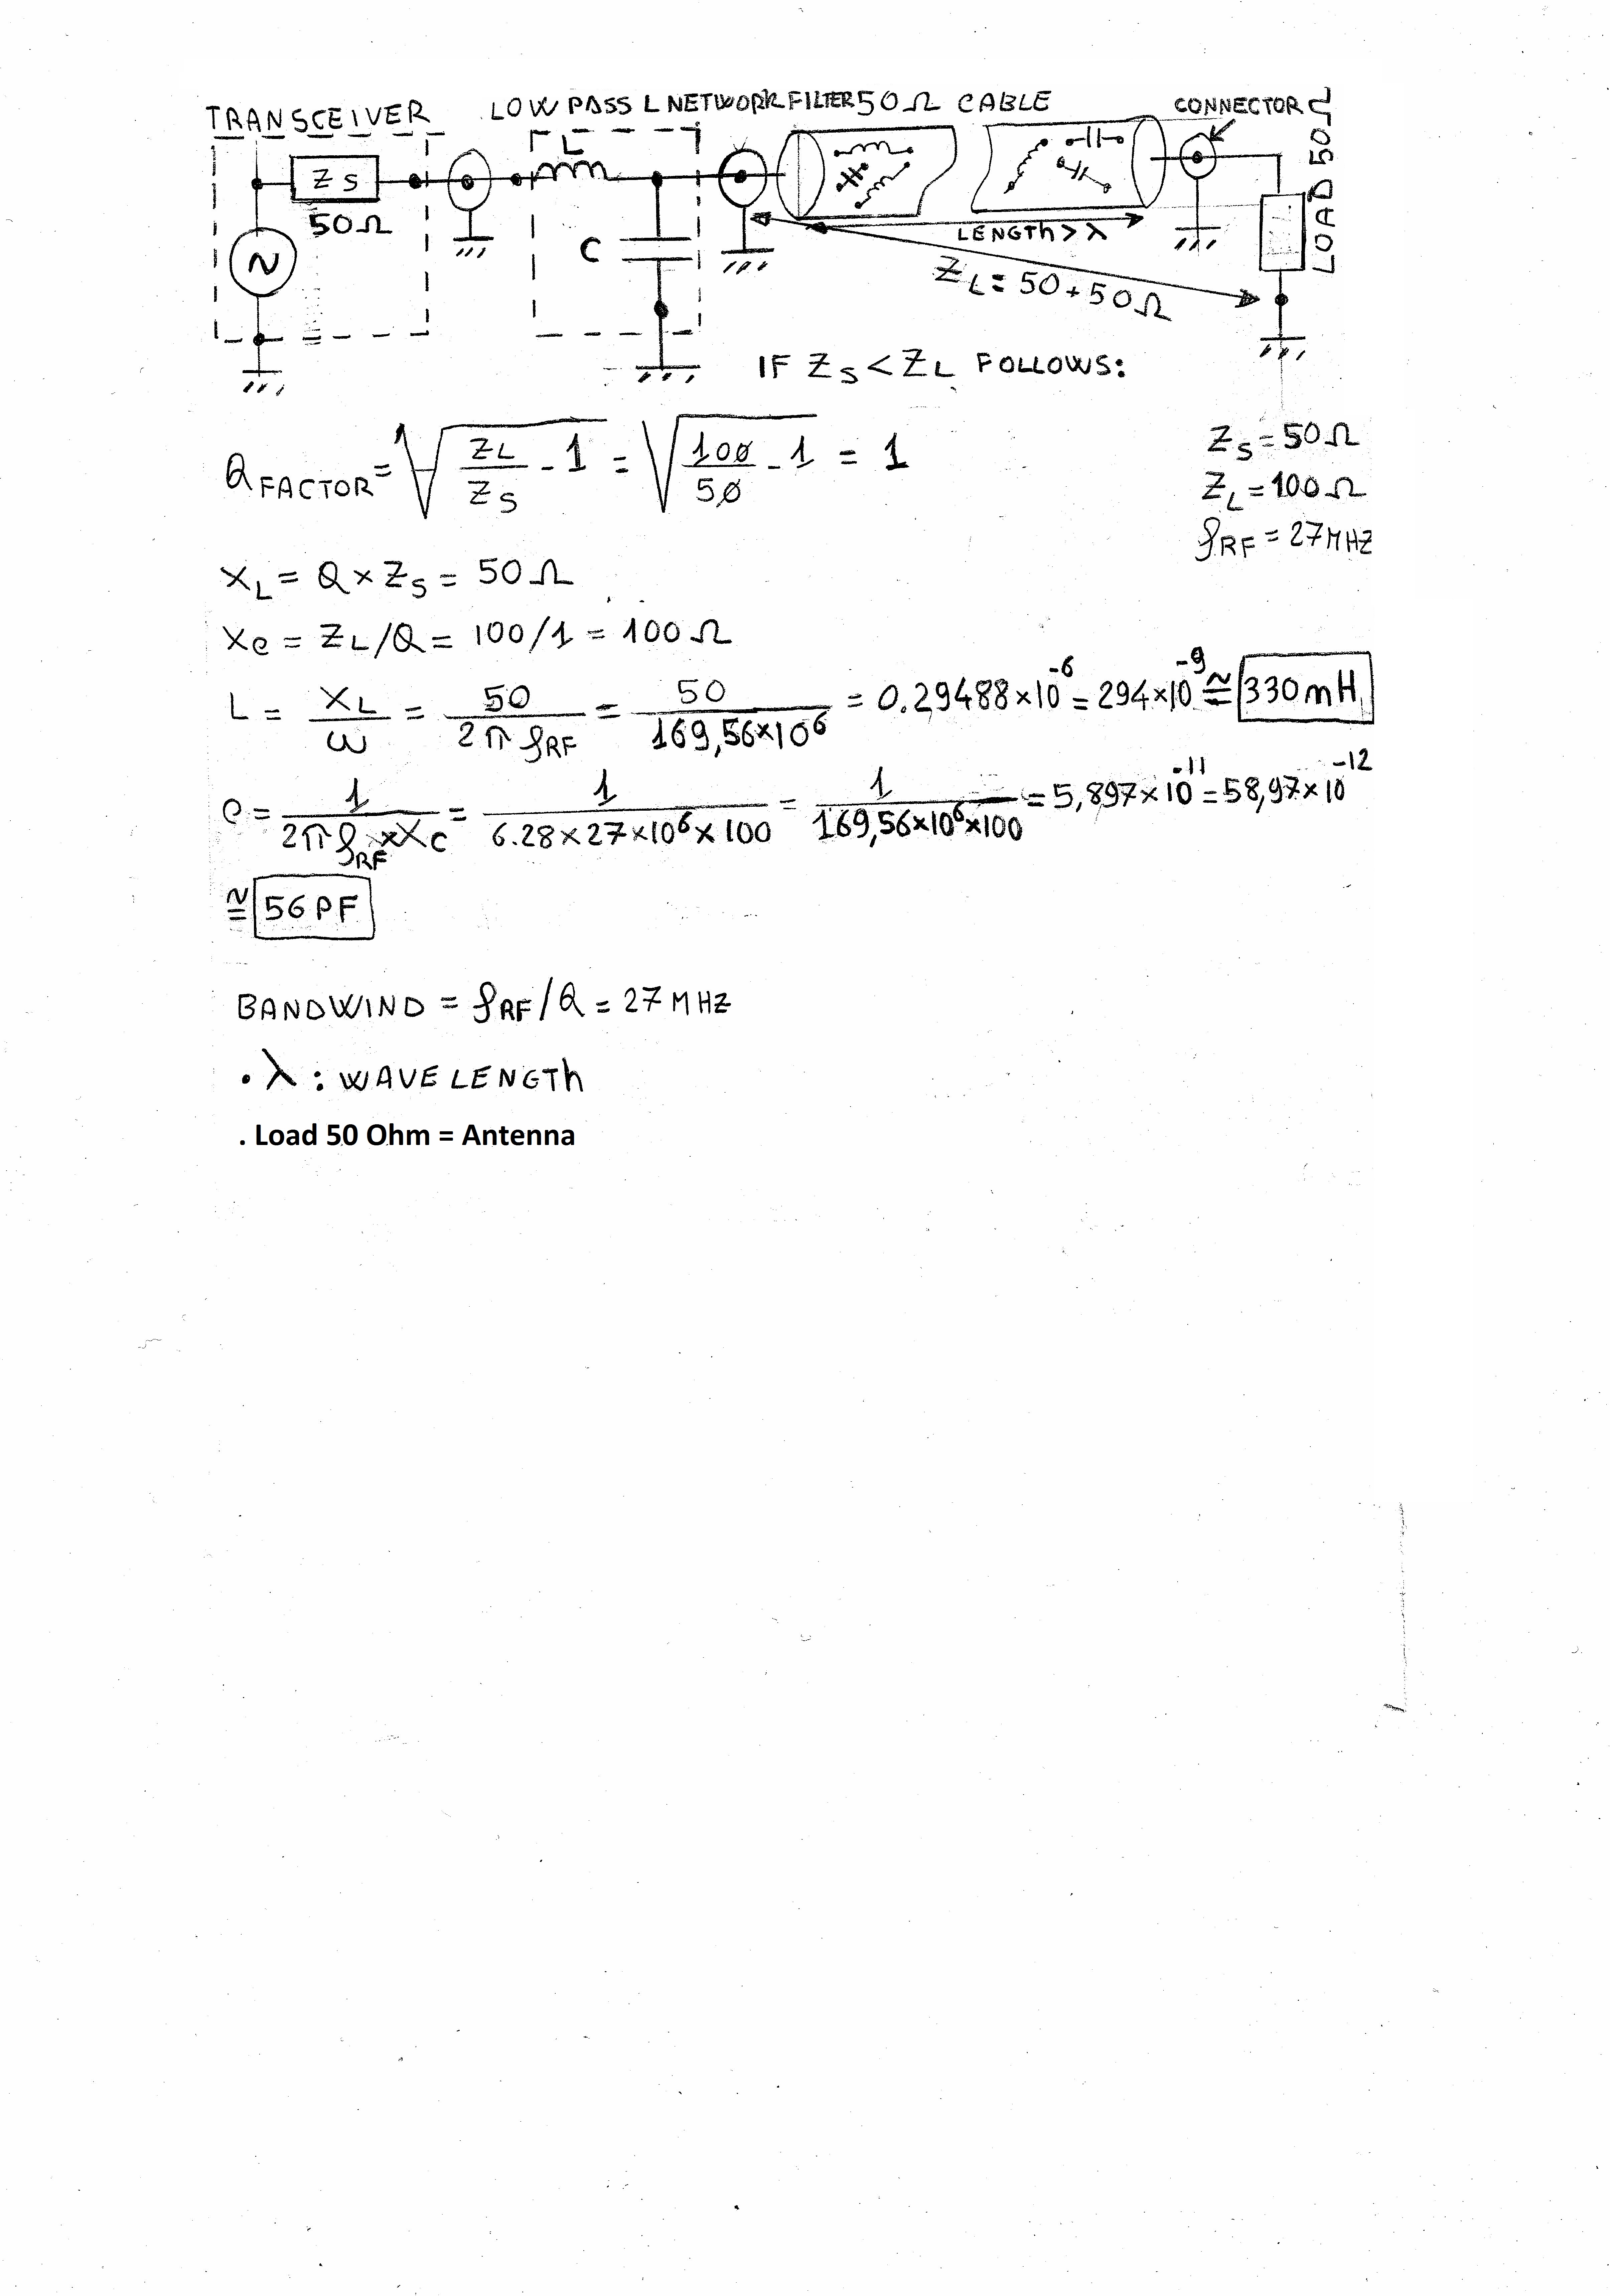 TRANSCEIVER LOW PASS L NETWORK FILTER 50Ω CABLE CONNECTOR
L
ZS
50Ω
C
LOAD 50Ω
LENGTh > λ
ZL = 50 + 50Ω
IF ZS < ZL FOLLOWS:
QFACTOR = √(ZL/ZS - 1) = √(100/50 - 1) = 1
ZS = 50Ω
ZL = 100Ω
fRF = 27MHZ
XL = Q × ZS = 50Ω
XC = ZL/Q = 100/1 = 100Ω
L = XL/ω = 50/2π fRF = 50/169,56×10^6 = 0.29488×10^-6 = 294×10^-9 ≅ 330mH
C = 1/2π fRF × XC = 1/6.28×27×10^6×100 = 1/169,56×10^6×100 = 5,897×10^-11 = 58,97×10^-12
≅ 56PF
BANDWIND = fRF/Q = 27MHZ
• λ : WAVELENGTh
. Load 50 Ohm = Antenna